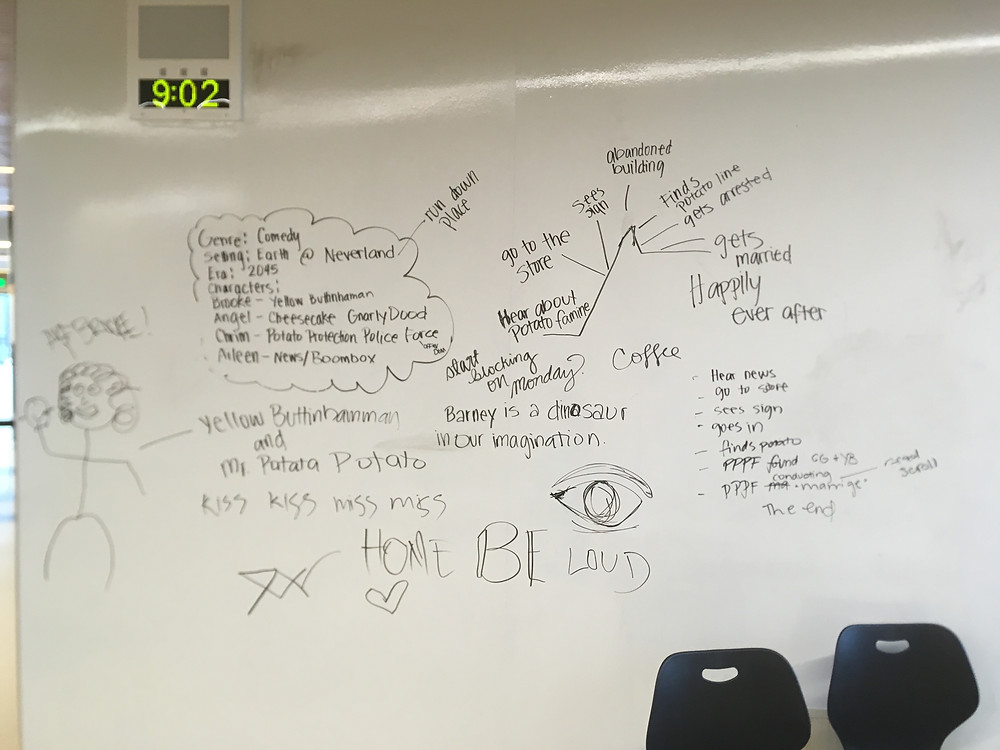 9:02
run down
place
Genre: Comedy
Setting: Earth @ Neverland
Era: 2045
Characters:
Brooke - Yellow Buttinhaman
Angel - Cheesecake GnarlyDood
- Potato Protection Police Force
Aileen - News/Boombox
yellow Buttinhamman
and
Mr. Patata Potato
KISS KISS miss miss
abandoned
building
Sees
sign
Finds
potato line
gets arrested
go to the
Store
gets
married
Happily
ever after
Hear about
Potato famine
start
blocking
on monday?
Coffee
Barney is a dinosaur
in our imagination.
- Hear news
- go to store
- sees sign
- goes in
- finds potato
- PPPF found GG + YB
conducting
- PPPF marrige
read
scroll
The end
HOME BE LOUD